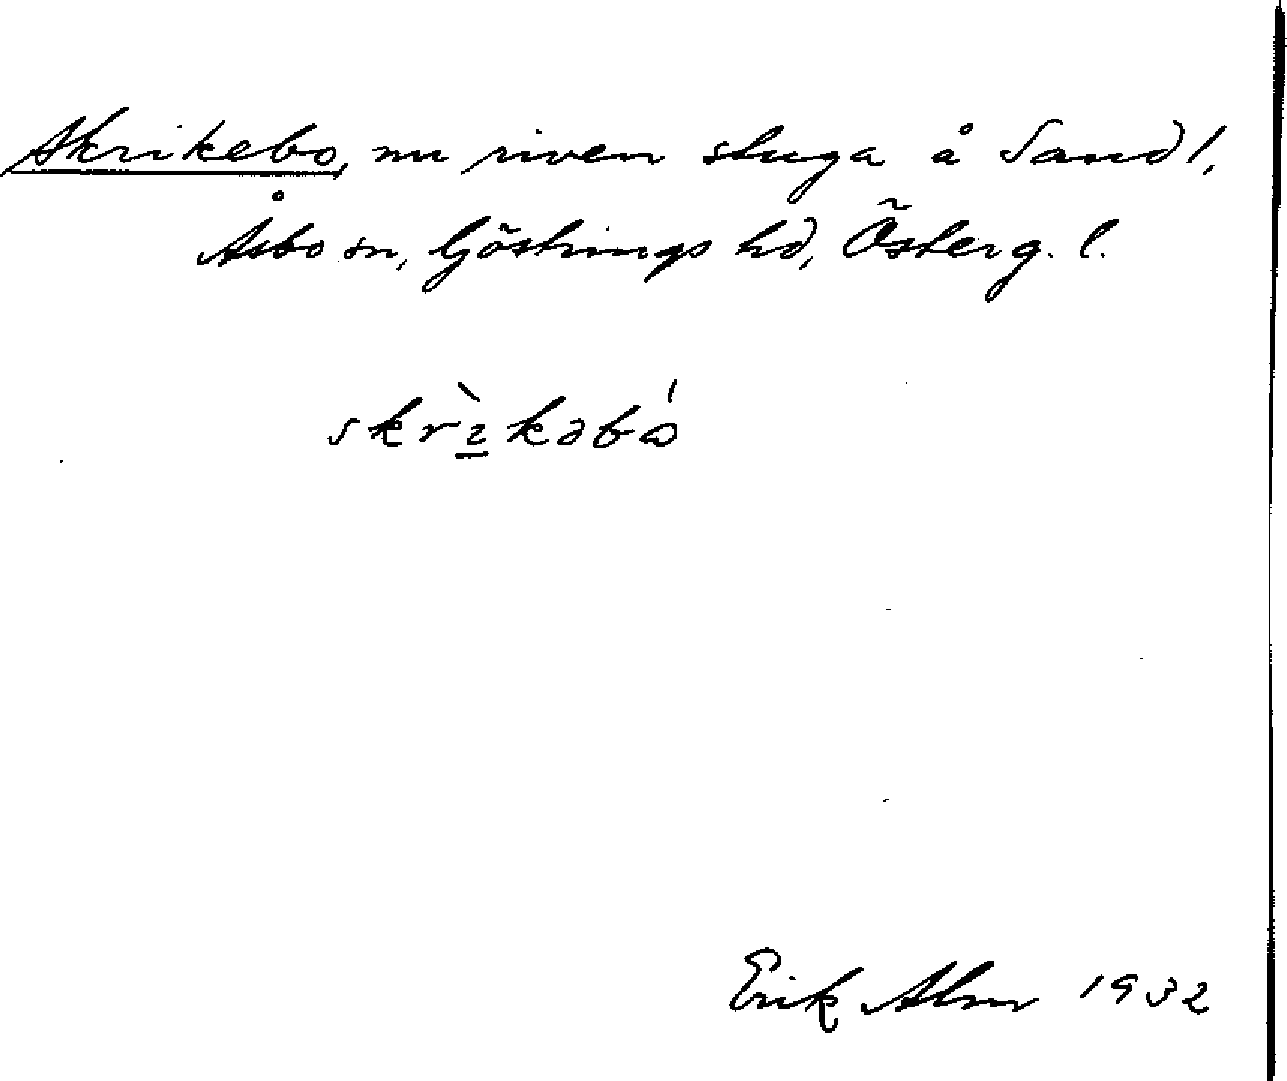 Skrikebo, nu riven stuga å Sand 1,
Åsbo sn, Göstrings hd, Österg. l.
skrı̲̀kəbώ
Erik Alm 1932